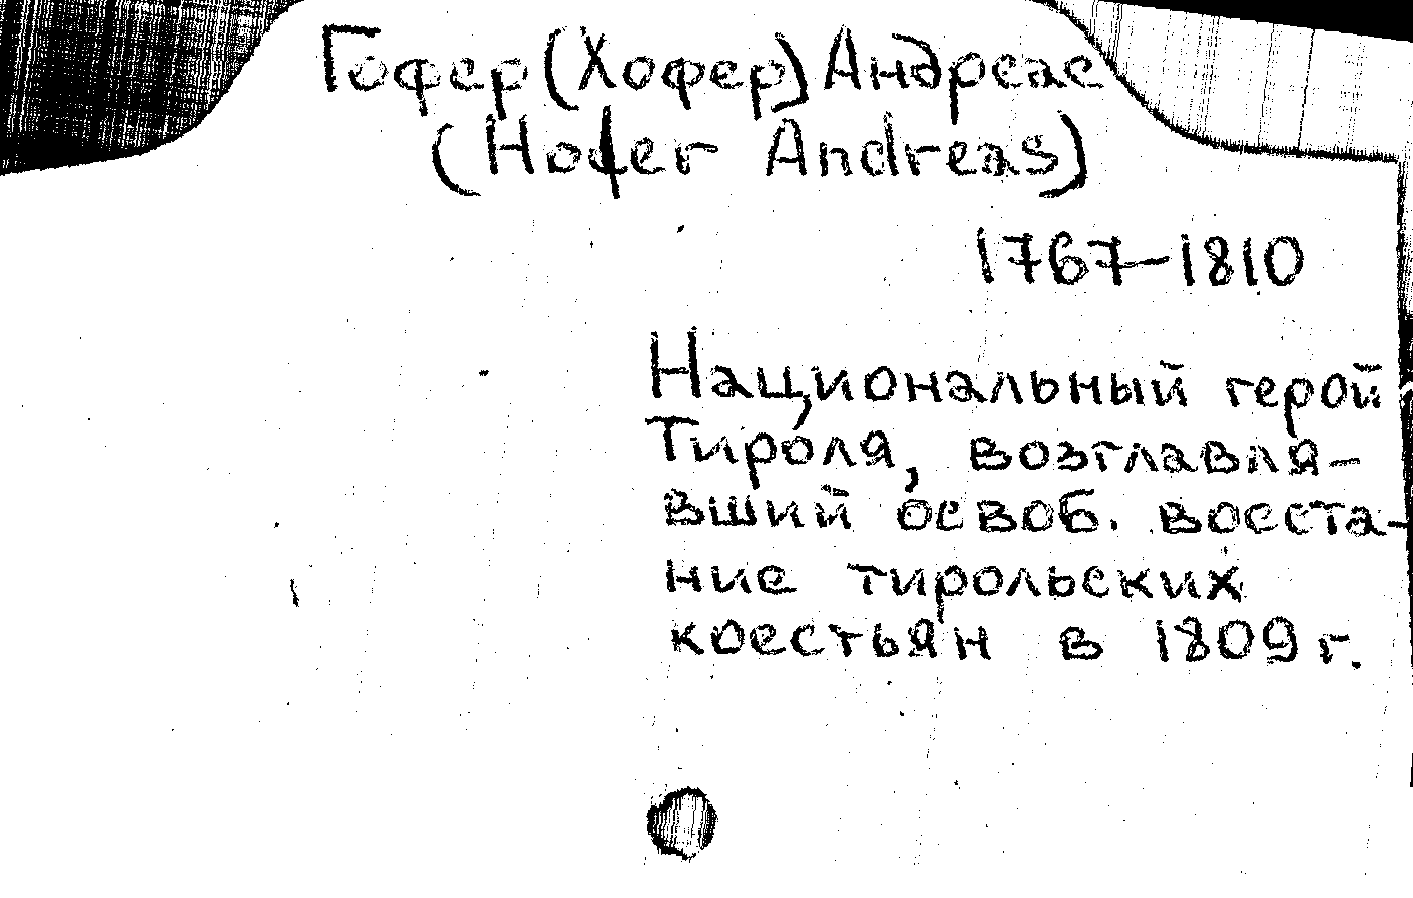 Гофер (Хофер) Андреас
(Hofer Andreas)
1767-1810
Национальный герой
Тироля, возглавля-
вший освоб. восста-
ние тирольских
крестьян в 1809 г.